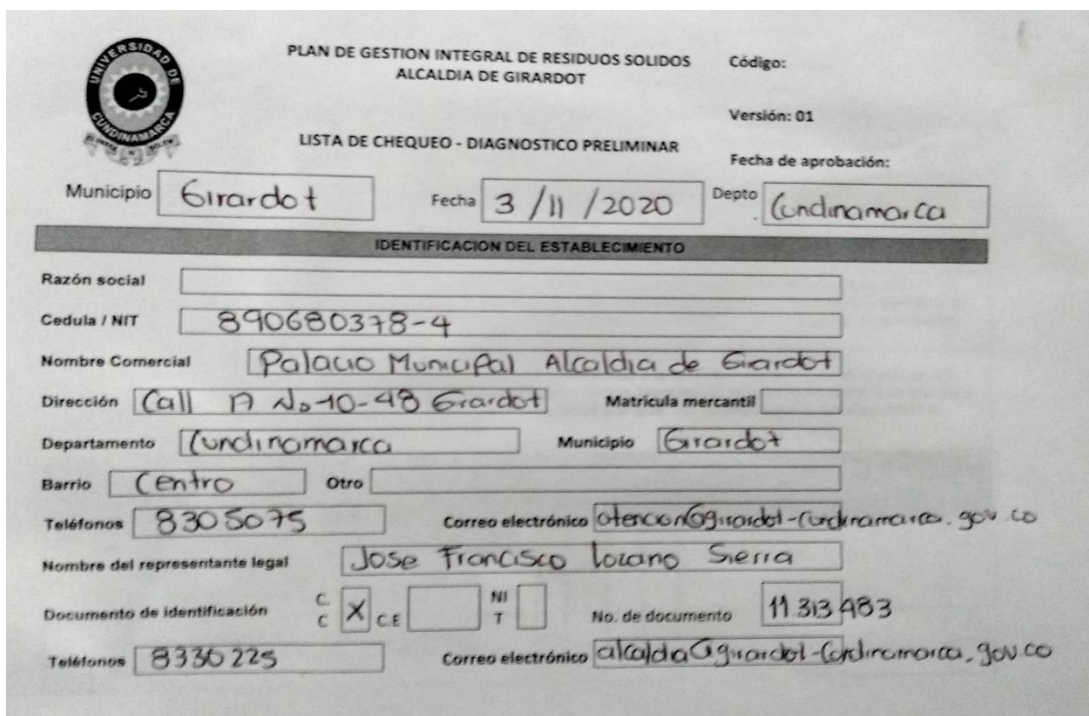 UNIVERSIDAD DE
CUNDINAMARCA
PLAN DE GESTION INTEGRAL DE RESIDUOS SOLIDOS
ALCALDIA DE GIRARDOT
Código:
Versión: 01
LISTA DE CHEQUEO - DIAGNOSTICO PRELIMINAR
Fecha de aprobación:
Municipio Girardot Fecha 3/11/2020 Depto Cundinamarca
IDENTIFICACION DEL ESTABLECIMIENTO
Razón social
Cedula / NIT 890680378-4
Nombre Comercial Palacio Municipal Alcaldia de Girardot
Dirección Call 17 No 10-48 Girardot Matricula mercantil
Departamento Cundinamarca Municipio Girardot
Barrio Centro Otro
Teléfonos 8305075 Correo electrónico atencion@girardot-cundinamarca.gov.co
Nombre del representante legal Jose Francisco Lozano Sierra
Documento de identificación C C X C.E NI T No. de documento 11.313483
Teléfonos 8330225 Correo electrónico alcaldia@girardot-Cundinamarca.gov.co